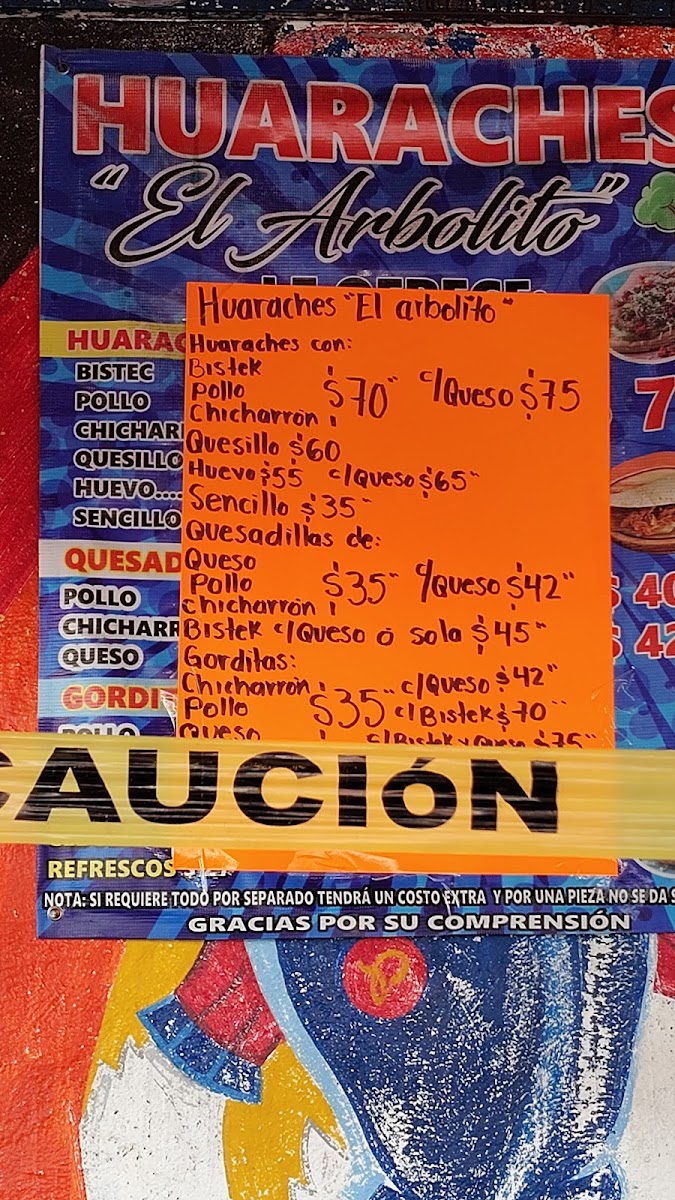 HUARACHES
"El Arbolito"
Huaraches "El arbolito"
HUARAC
Huaraches con:
BISTEC
Bistek
POLLO
Pollo $70 c/Queso $75
CHICHARR
Chicharrón
QUESILLO
Quesillo $60
HUEVO....
Huevo $55 c/Queso $65
SENCILLO
Sencillo $35
Quesadillas de:
QUESAD
Queso
POLLO
Pollo $35 c/Queso $42
CHICHARR
Chicharrón
Bistek c/Queso ó sola $45
QUESO
Gorditas:
GORDI
Chicharrón c/Queso $42
Pollo $35 c/Bistek $70
POLLO
Queso c/Bistek y Queso $75
7
$ 40
$ 42
CAUCIóN
REFRESCOS
NOTA: SI REQUIERE TODO POR SEPARADO TENDRÁ UN COSTO EXTRA Y POR UNA PIEZA NO SE DA S
GRACIAS POR SU COMPRENSIÓN